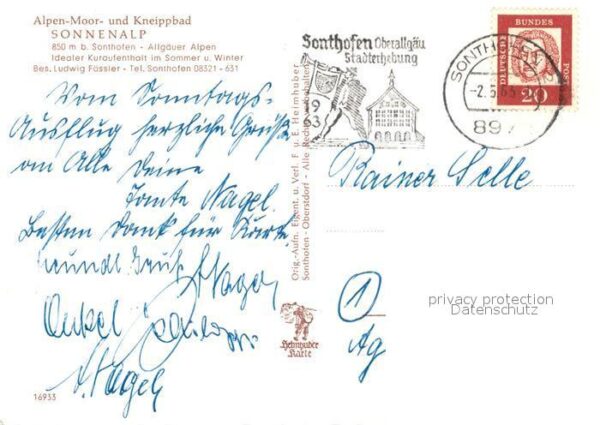 Alpen-Moor- und Kneippbad
SONNENALP
850 m b. Sonthofen - Allgäuer Alpen
Idealer Kuraufenthalt im Sommer u. Winter
Bes. Ludwig Fässler - Tel. Sonthofen 08321 - 631
Vom Sonntags-
Ausflug herzliche Grüße
an Alle Deine
Tante Nagel.
Besten Dank für Karte
Onkel
A. Nagel
16933
Orig.-Aufn. Eigent. u. Verl. F. u. E. Heimhuber
Sonthofen - Oberstdorf - Alle Rechte vorbehalten
Heimhuber
Karte
Sonthofen Oberallgäu
Stadterhebung
1963
SONTHOFEN
-2.5.63
897
DEUTSCHE
BUNDES
POST
20
Rainer Selle
1
Ag
privacy protection
Datenschutz